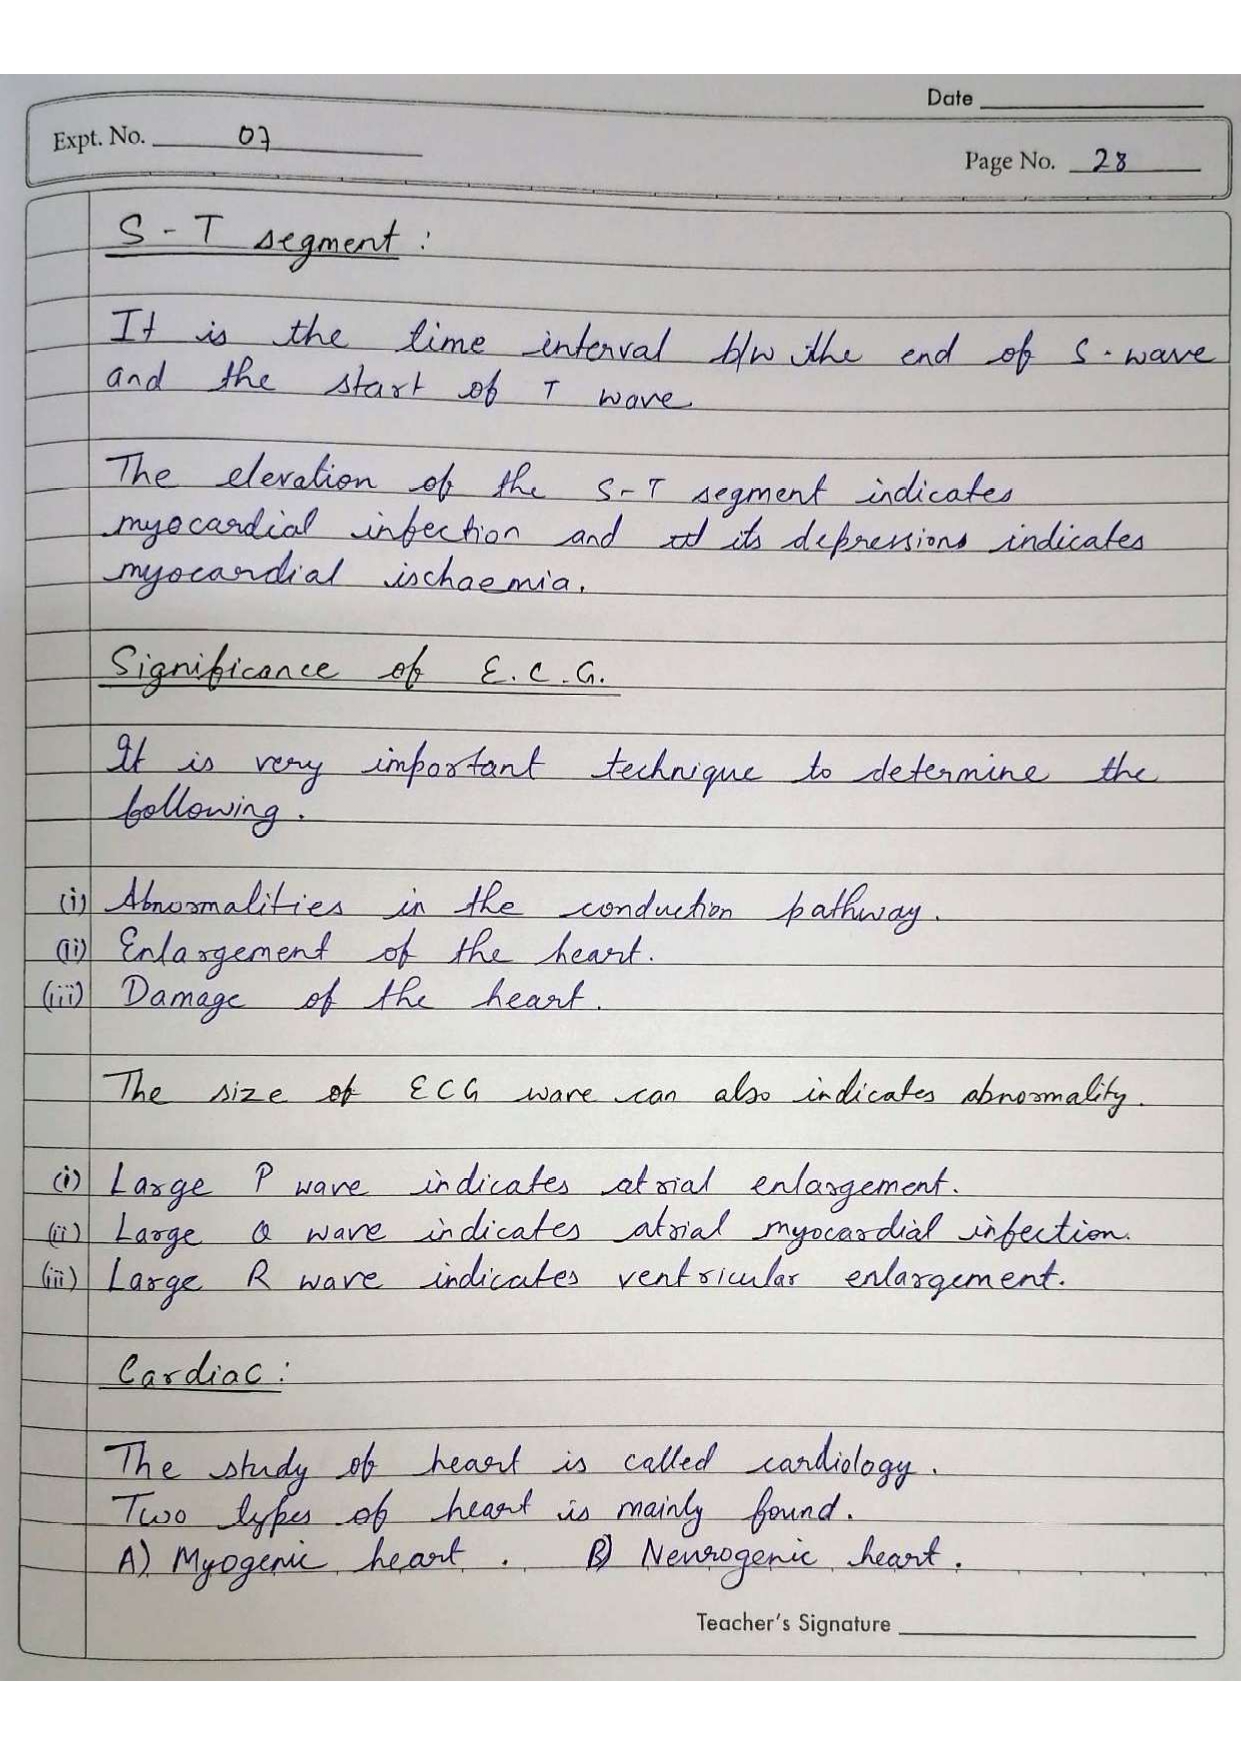 Date
Expt. No. 07
Page No. 28
S-T segment :
It is the time interval b/w the end of S-wave
and the start of T wave
The elevation of the S-T segment indicates
myocardial infection and its depressions indicates
myocardial ischaemia.
Significance of E.C.G.
It is very important technique to determine the
following.
(i) Abnormalities in the conduction pathway.
(ii) Enlargement of the heart.
(iii) Damage of the heart.
The size of ECG wave can also indicates abnormality.
(i) Large P wave indicates atrial enlargement.
(ii) Large Q wave indicates atrial myocardial infection.
(iii) Large R wave indicates ventricular enlargement.
Cardiac :
The study of heart is called cardiology.
Two types of heart is mainly found.
A) Myogenic heart. B) Neurogenic heart.
Teacher's Signature